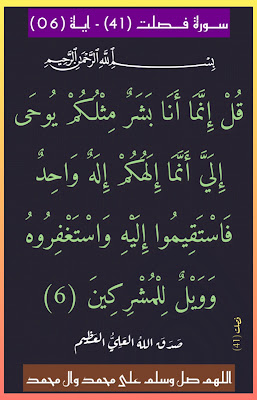 سورة فصلت (41) - اية (06)
بِسْمِ اللَّهِ الرَّحْمَٰنِ الرَّحِيمِ
قُلْ إِنَّمَا أَنَا بَشَرٌ مِثْلُكُمْ يُوحَى
إِلَيَّ أَنَّمَا إِلَهُكُمْ إِلَهٌ وَاحِدٌ
فَاسْتَقِيمُوا إِلَيْهِ وَاسْتَغْفِرُوهُ
وَوَيْلٌ لِلْمُشْرِكِينَ (6)
صَدَقَ اللهُ العَليُّ العَظيم
فصلت (41)
اللهم صل وسلم على محمد وال محمد